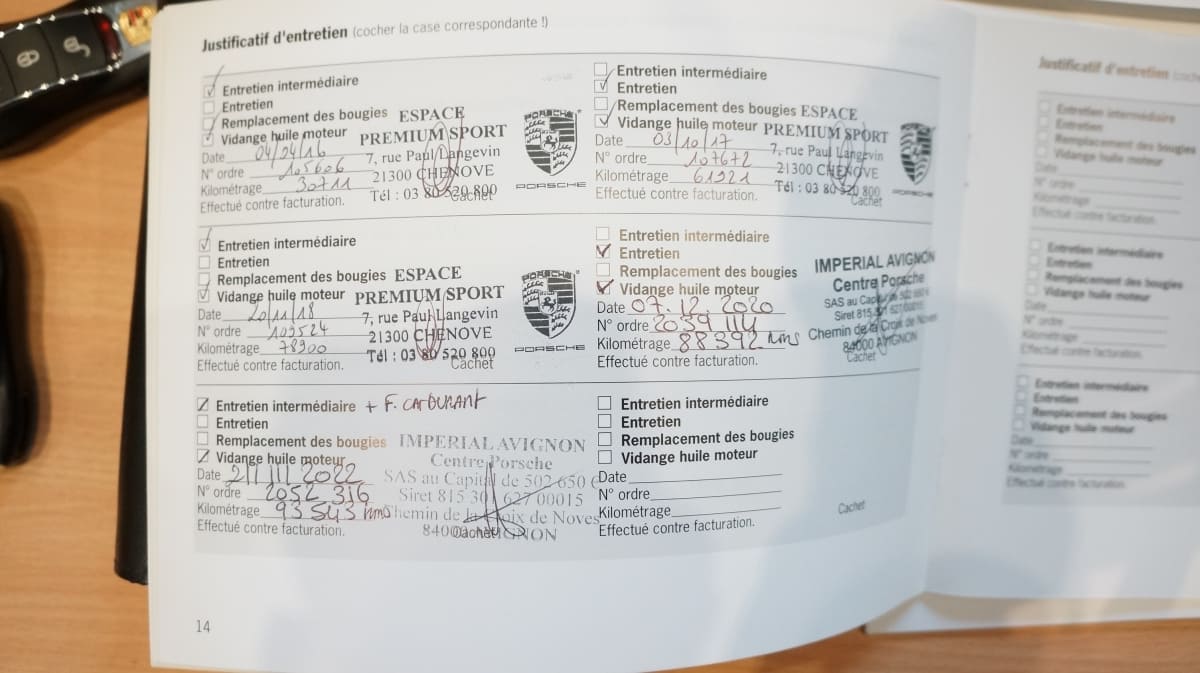 Justificatif d'entretien (cocher la case correspondante !)
Entretien intermédiaire
Entretien
Remplacement des bougies
Vidange huile moteur
Date 04/04/16
N° ordre 105606
Kilométrage 30711
Effectué contre facturation.
ESPACE
PREMIUM SPORT
7, rue Paul Langevin
21300 CHENOVE
Tél : 03 80 520 800
Cachet
PORSCHE
PORSCHE
Entretien intermédiaire
Entretien
Remplacement des bougies
Vidange huile moteur
Date 03/10/17
N° ordre 107672
Kilométrage 61921
Effectué contre facturation.
ESPACE
PREMIUM SPORT
7, rue Paul Langevin
21300 CHENOVE
Tél : 03 80 520 800
Cachet
PORSCHE
Entretien intermédiaire
Entretien
Remplacement des bougies
Vidange huile moteur
Date 20/11/18
N° ordre 109524
Kilométrage 78900
Effectué contre facturation.
ESPACE
PREMIUM SPORT
7, rue Paul Langevin
21300 CHENOVE
Tél : 03 80 520 800
Cachet
PORSCHE
PORSCHE
Entretien intermédiaire
Entretien
Remplacement des bougies
Vidange huile moteur
Date 07.12.2020
N° ordre 2039 114
Kilométrage 88392 kms
Effectué contre facturation.
IMPERIAL AVIGNON
Centre Porsche
SAS au Capital de 502 650 €
Siret 815 301 627 00015
Chemin de la Croix de Noves
84000 AVIGNON
Cachet
Entretien intermédiaire + F. CARBURANT
Entretien
Remplacement des bougies
Vidange huile moteur
Date 21/11/2022
N° ordre 2052 316
Kilométrage 93543 kms
Effectué contre facturation.
IMPERIAL AVIGNON
Centre Porsche
SAS au Capital de 502 650 €
Siret 815 301 627 00015
Chemin de la Croix de Noves
84000 AVIGNON
Cachet
Entretien intermédiaire
Entretien
Remplacement des bougies
Vidange huile moteur
Date
N° ordre
Kilométrage
Effectué contre facturation.
Cachet
14
Justificatif d'entretien
Entretien intermédiaire
Entretien
Remplacement des bougies
Vidange huile moteur
Date
N° ordre
Kilométrage
Effectué contre facturation.
Entretien intermédiaire
Entretien
Remplacement des bougies
Vidange huile moteur
Date
N° ordre
Kilométrage
Effectué contre facturation.
Entretien intermédiaire
Entretien
Remplacement des bougies
Vidange huile moteur
Date
N° ordre
Kilométrage
Effectué contre facturation.